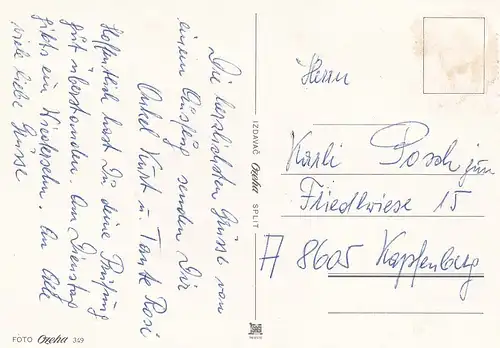 Die herzlichsten Grüsse von
einem Ausflug senden Dir
Onkel Kurt u Tante Rosi
Hoffentlich hast Du deine Prüfung
gut überstanden. Am Dienstag
gibts ein Wiedersehn. An alle
viele liebe Grüsse
IZDAVAČ Ozeha SPLIT
FOTO Ozeha 349
Herrn
Karli Posch jun
Friedlwiese 15
A 8605 Kapfenberg